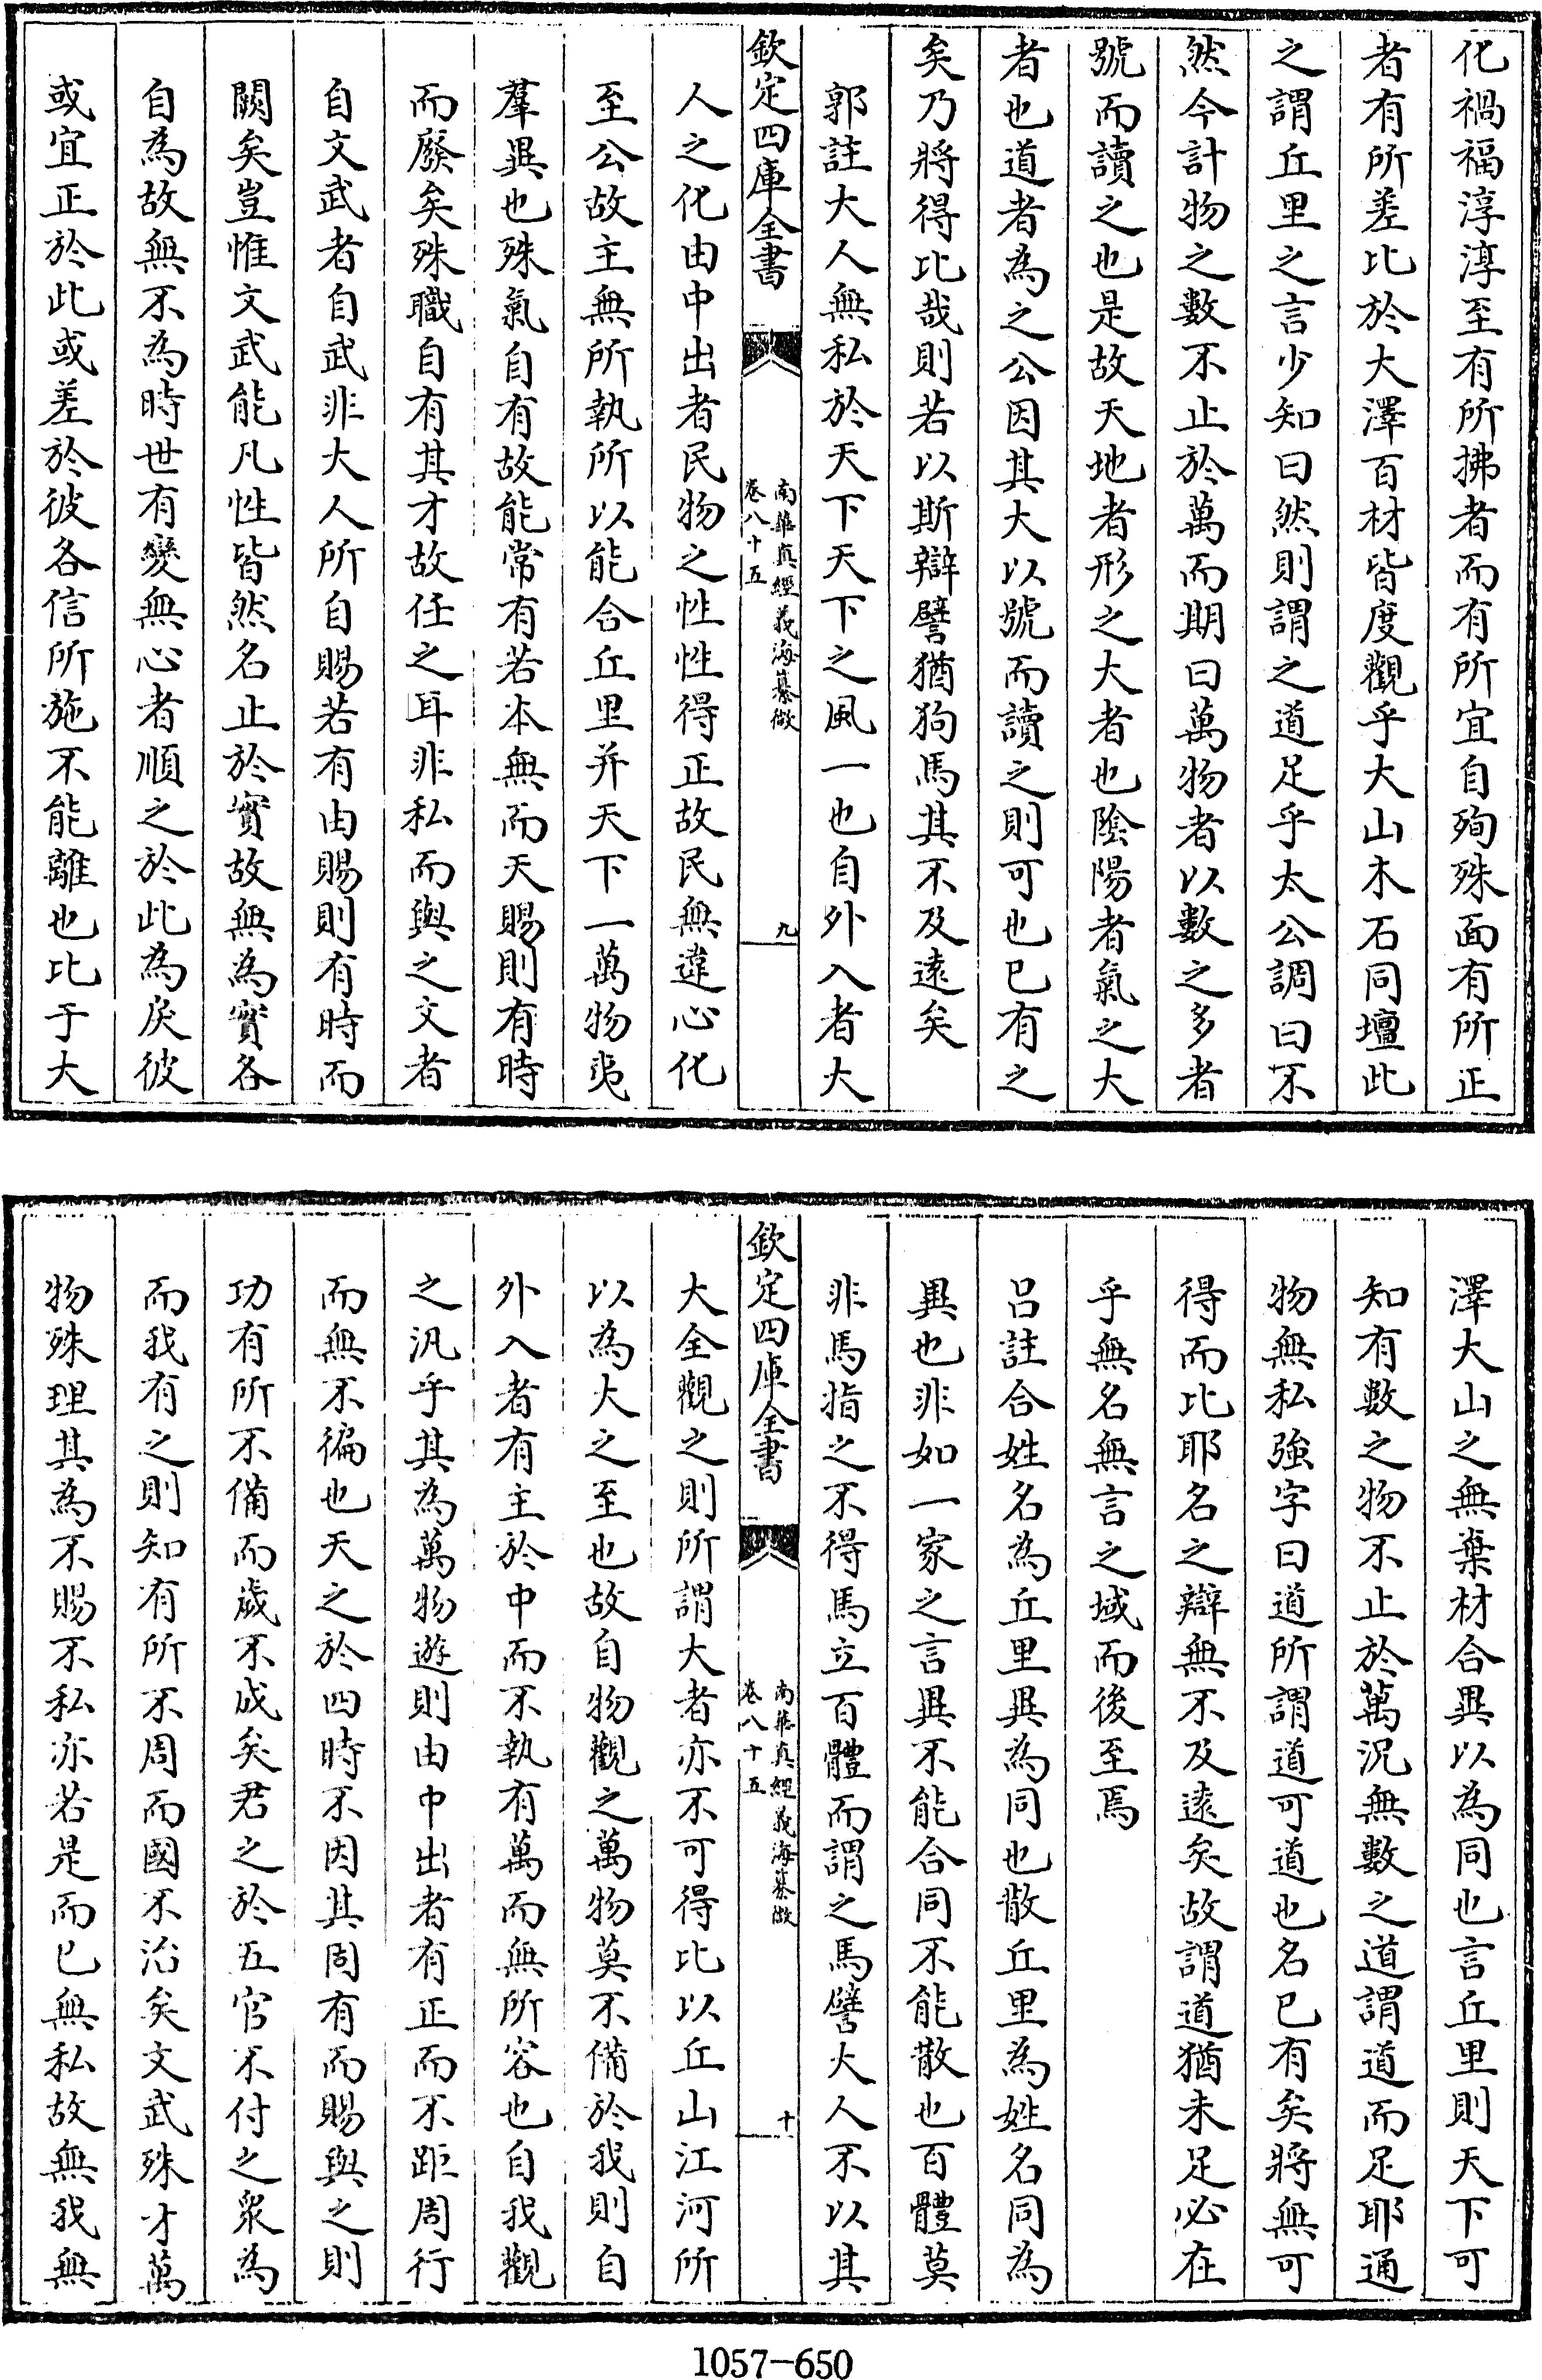 化禍福淳淳至有所拂者而有所宜自殉殊面有所正
者有所差比於大澤百材皆度觀乎大山木石同壇此
之謂丘里之言少知曰然則謂之道足乎太公調曰不
然今計物之數不止於萬而期曰萬物者以數之多者
號而讀之也是故天地者形之大者也陰陽者氣之大
者也道者為之公因其大以號而讀之則可也已有之
矣乃將得比哉則若以斯辯譬猶狗馬其不及遠矣
郭註大人無私於天下天下之風一也自外入者大
欽定四庫全書
南華真經義海纂微
卷八十五
九
人之化由中出者民物之性性得正故民無違心化
至公故主無所執所以能合丘里并天下一萬物夷
羣異也殊氣自有故能常有若本無而天賜則有時
而廢矣殊職自有其才故任之耳非私而與之文者
自文武者自武非大人所自賜若有由賜則有時而
闕矣豈惟文武能凡性皆然名止於實故無為實各
自為故無不為時世有變無心者順之於此為戾彼
或宜正於此或差於彼各信所施不能離也比于大
澤大山之無棄材合異以為同也言丘里則天下可
知有數之物不止於萬況無數之道謂道而足耶通
物無私強字曰道所謂道可道也名已有矣將無可
得而比耶名之辯無不及遠矣故謂道猶未足必在
乎無名無言之域而後至焉
呂註合姓名為丘里異為同也散丘里為姓名同為
異也非如一家之言異不能合同不能散也百體莫
非馬指之不得馬立百體而謂之馬譬大人不以其
欽定四庫全書
南華真經義海纂微
卷八十五
十
大全觀之則所謂大者亦不可得比以丘山江河所
以為大之至也故自物觀之萬物莫不備於我則自
外入者有主於中而不執有萬而無所容也自我觀
之汎乎其為萬物遊則由中出者有正而不距周行
而無不徧也天之於四時不因其固有而賜與之則
功有所不備而歲不成矣君之於五官不付之衆為
而我有之則知有所不周而國不治矣文武殊才萬
物殊理其為不賜不私亦若是而已無私故無我無
1057-650